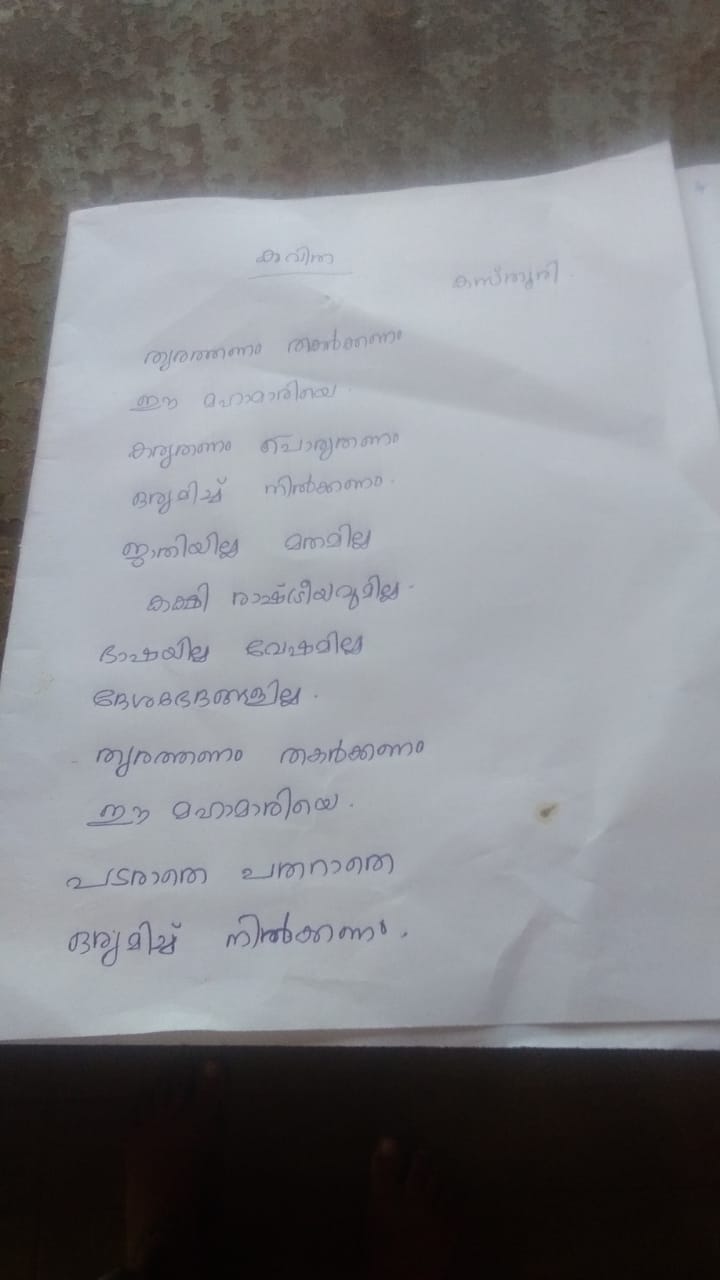 കവിത
കസ്തൂരി
തുരത്തണം തകർക്കണം
ഈ മഹാമാരിയെ.
കരുതണം പൊരുതണം
ഒരുമിച്ച് നിൽക്കണം.
ജാതിയില്ല മതമില്ല
കക്ഷി രാഷ്ട്രീയവുമില്ല.
ഭാഷയില്ല വേഷമില്ല
ദേശഭേദങ്ങളില്ല.
തുരത്തണം തകർക്കണം
ഈ മഹാമാരിയെ.
പടരാതെ പതറാതെ
ഒരുമിച്ച് നിൽക്കണം.